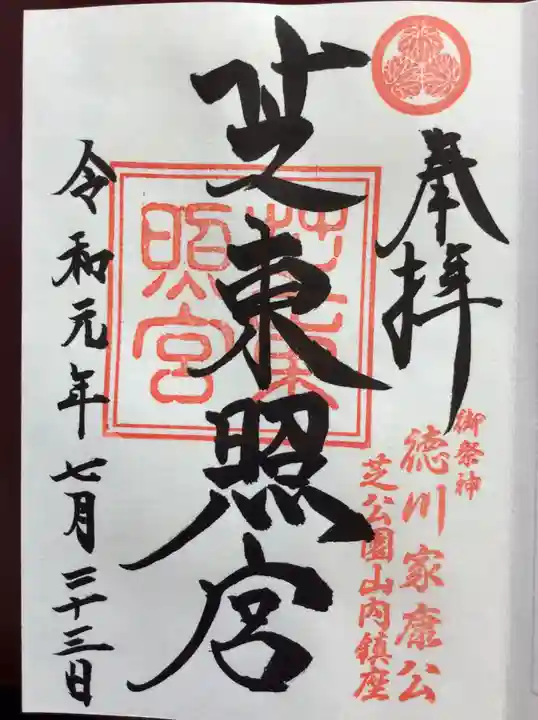 奉拝
御祭神
徳川家康公
芝公園山内鎮座
芝東照宮
芝東
照宮
令和元年七月二十三日